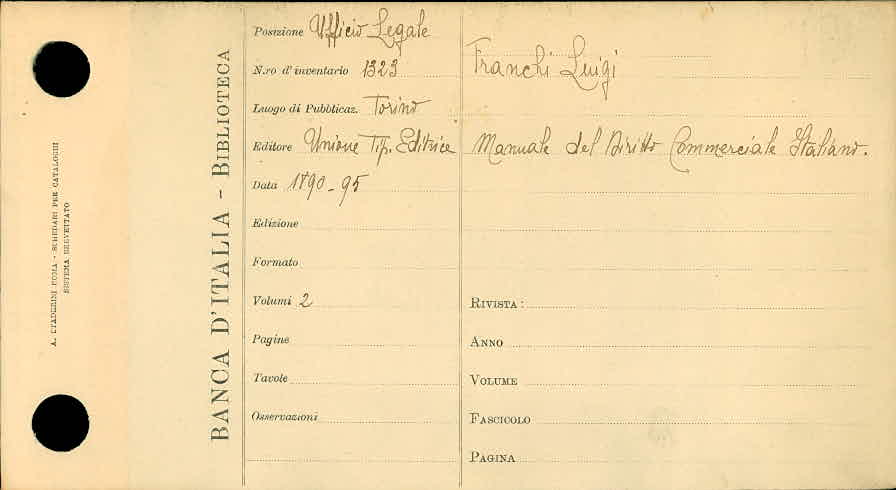 A. STADERINI ROMA - SCHEDARI PER CATALOGHI
SISTEMA BREVETTATO
BANCA D'ITALIA - BIBLIOTECA
Posizione Ufficio Legale
N.ro d'inventario 1323
Luogo di Pubblicaz. Torino
Editore Unione Tip. Editrice
Data 1890-95
Edizione
Formato
Volumi 2
Pagine
Tavole
Osservazioni
Franchi Luigi
Manuale del Diritto Commerciale Italiano.
RIVISTA:
ANNO
VOLUME
FASCICOLO
PAGINA